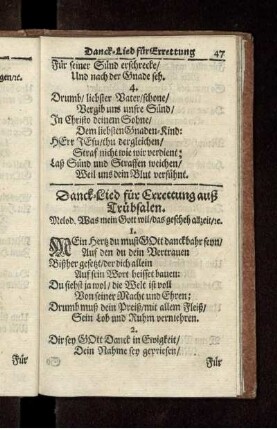 Danck-Lied für Errettung 47
Für seiner Sünd erschrecke/
Und nach der Gnade seh.
4.
Drumb/ liebster Vater/ schone/
Vergib uns unsre Sünd/
In Christo deinem Sohne/
Dem liebsten Gnaden-Kind:
HErr JEsu/ thu dergleichen/
Straf nicht wie wir verdient;
Laß Sünd und Straffen weichen/
Weil uns dein Blut versühnt.
Danck-Lied für Errettung auß
Trübsalen.
Melod. Was mein Gott wil/ das gescheh allzeit/ ꝛc.
1.
MEin Hertz du must GOtt danckbahr seyn/
Auf den du dein Vertrauen
Bißher gesetzt/ der dich allein
Auf sein Wort heisset bauen:
Du siehst ja wol/ die Welt ist voll
Von seiner Macht und Ehren;
Drumb must dein Preiß/ mit allem Fleiß/
Sein Lob und Ruhm vermehren.
2.
Dir sey GOtt Danck in Ewigkeit/
Dein Nahme sey gepriesen/
Für
Für